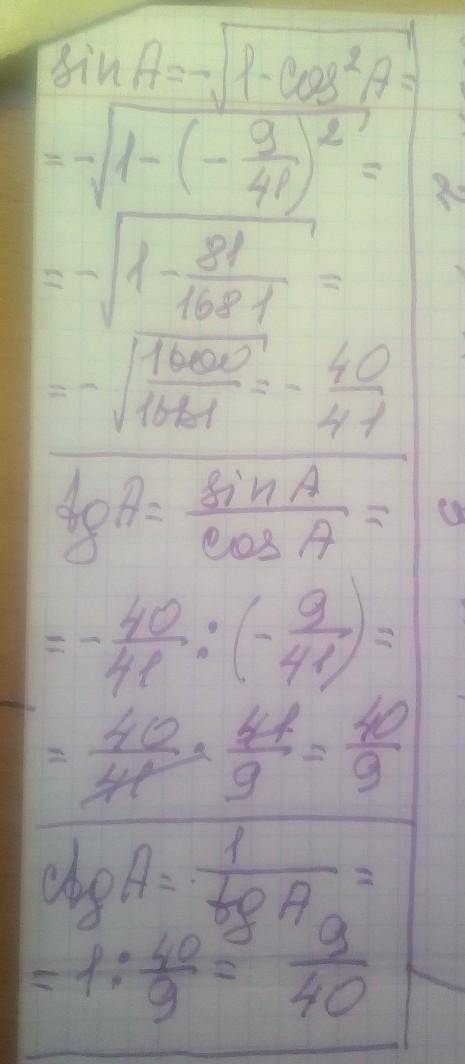 sin A = -√(1 - cos² A) =
= -√(1 - (- 9/41)²) =
= -√(1 - 81/1681) =
= -√(1600/1681) = - 40/41
tg A = sin A / cos A =
= - 40/41 : (- 9/41) =
= 40/41 · 41/9 = 40/9
ctg A = 1 / tg A =
= 1 : 40/9 = 9/40